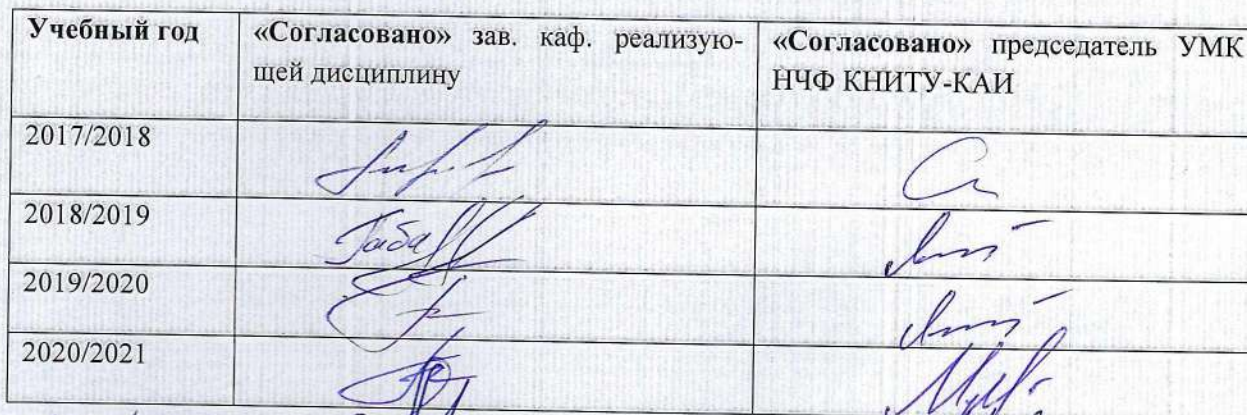 Учебный год
«Согласовано» зав. каф. реализую-
щей дисциплину
«Согласовано» председатель УМК
НЧФ КНИТУ-КАИ
2017/2018
2018/2019
2019/2020
2020/2021